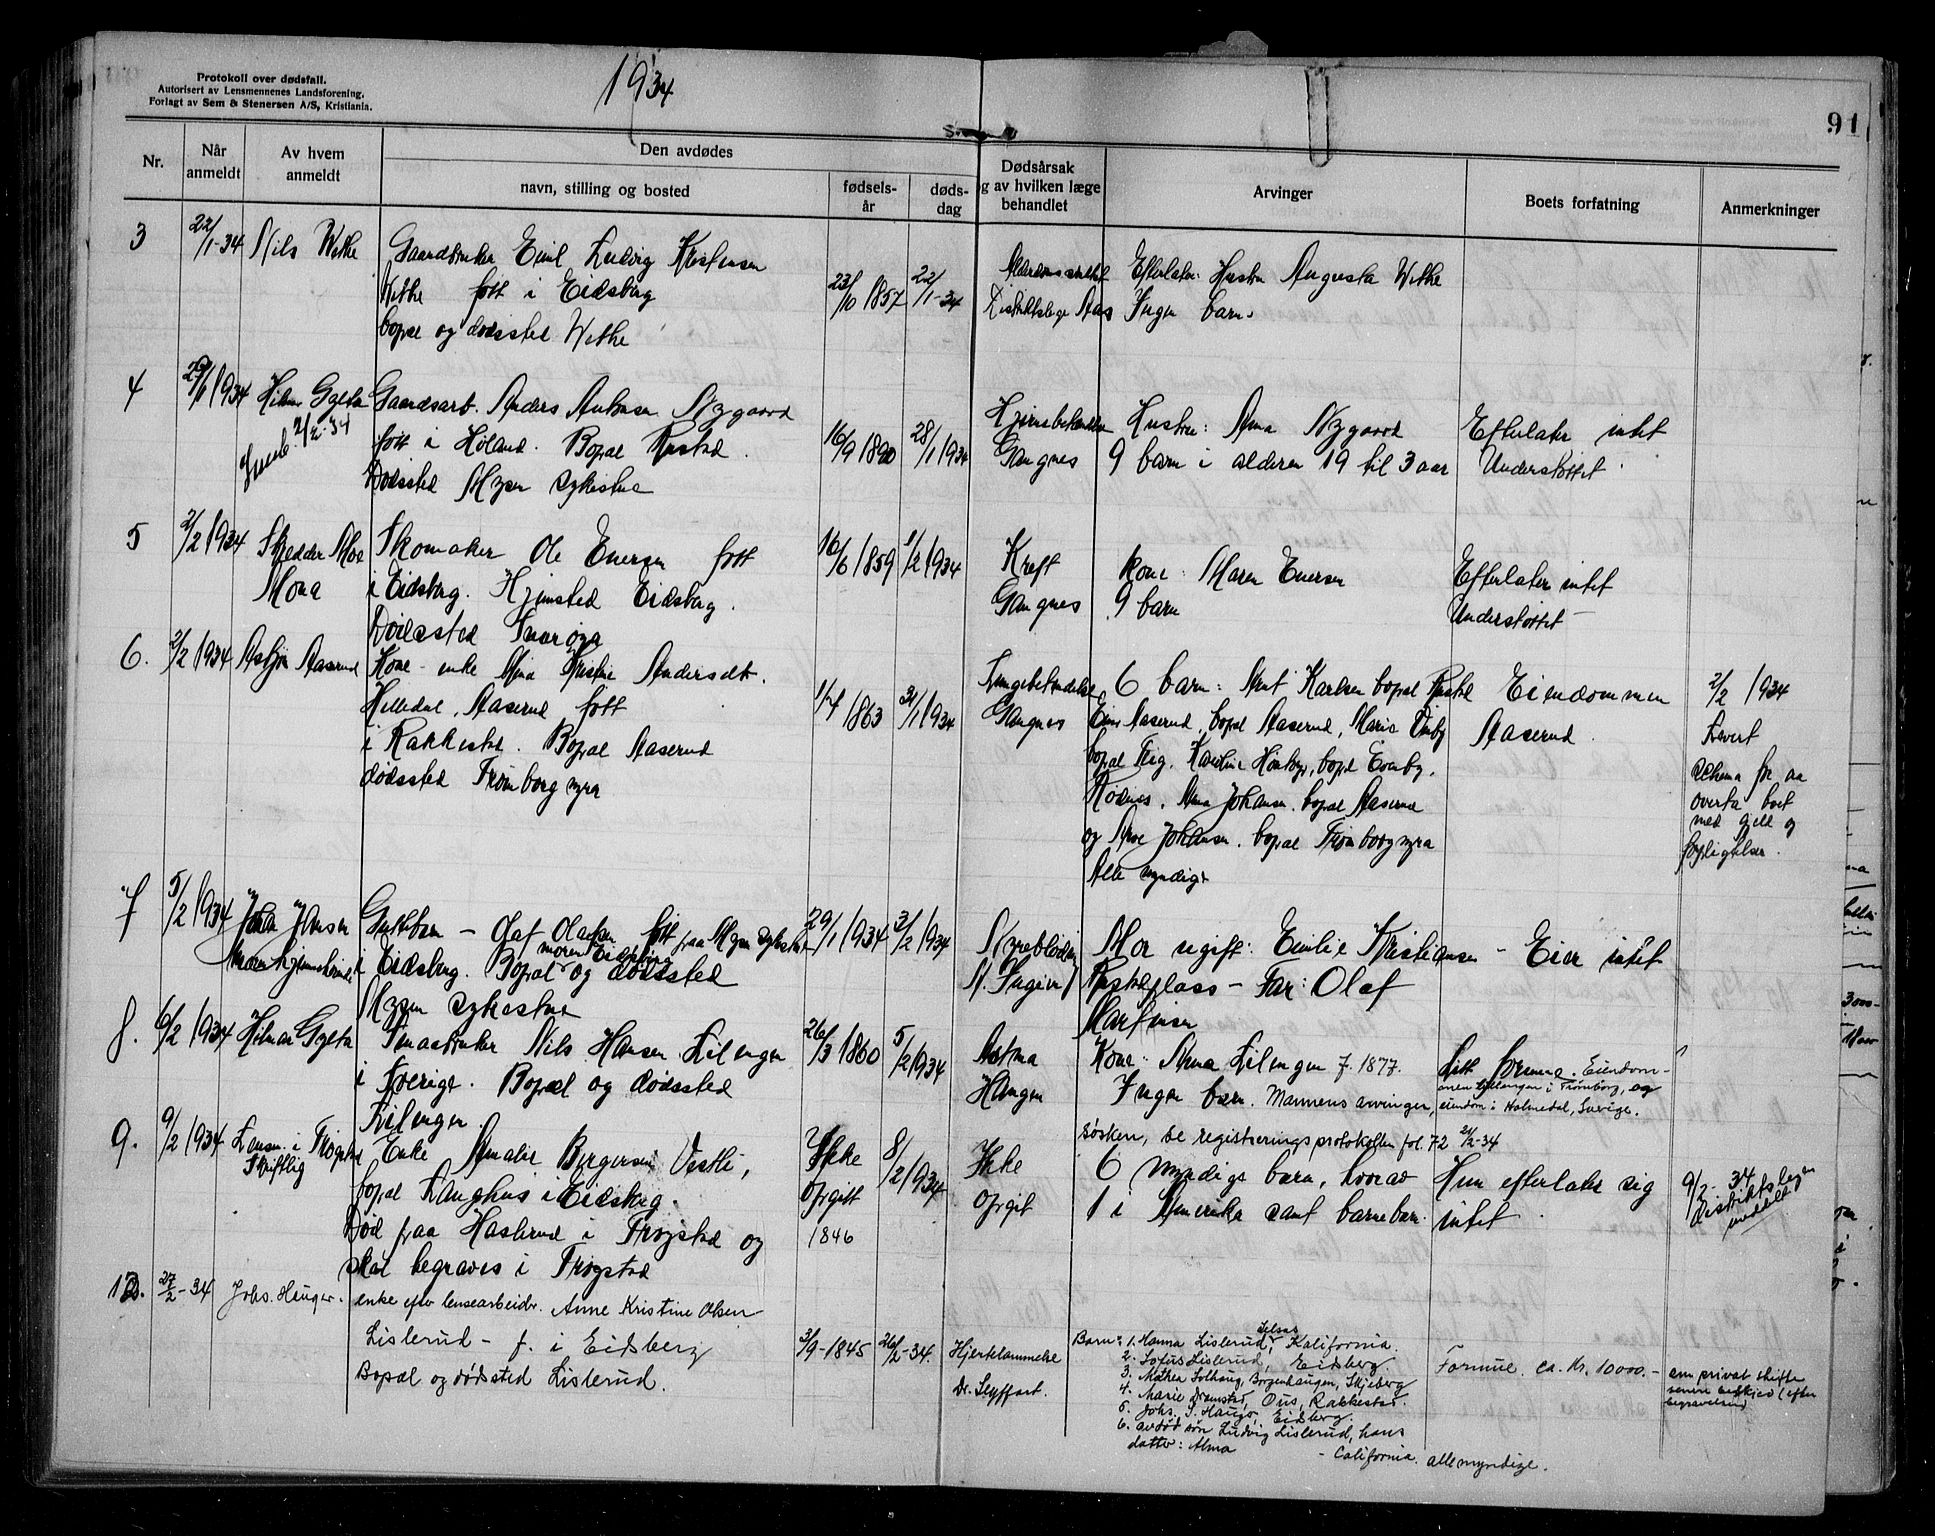 Protokoll over dødsfall.
Autorisert av Lensmennenes Landsforening.
Forlagt av Sem & Stenersen A/S, Kristiania.
1934
91
Nr.
Når anmeldt
Av hvem anmeldt
Den avdødes
navn, stilling og bosted
fødsels-
år
døds-
dag
Dødsårsak
og av hvilken læge
behandlet
Arvinger
Boets forfatning
Anmerkninger
3
22/1-34
Nils Wethe
Gaardbruker Emil Ludvig Kristensen
Wethe født i Eidsberg
bopæl og dødssted Wethe
23/10 1857
22/1-34
Distriktslæge Aas
Efterlater: Hustru Augusta Wethe
Ingen barn.
4
29/1 1934
Hilmar Gylta
2/2-34
Gaardsarb. Anders Antonsen Nygaard
født i Høland. Bopæl Rustad.
Dødssted Mysen sykestue
16/9 1890
28/1 1934
Gangnes
Hustru: Anna Nygaard
9 barn i alderen 19 til 3 aar
Efterlater intet
Understøttet.
5
2/2 1934
Skredder Moe
Mona
Skomaker Ole Enersen født
i Eidsberg. Hjemsted Eidsberg.
Dødssted
16/6 1859
1/2 1934
Kreft
Gangnes
Kone: Maren Enersen
9 barn
Efterlater intet
Understøttet
6.
2/2 1934
Asbjørn Aaserud
Kone - enke Mina Kristine Andersdt.
Helledal, Aaserud født
i Rakkestad. Bopæl Aaserud
dødssted Trømborg myra
1863
31/1 1934
Lungebetændelse
Gangnes
6 barn: Karlsen bopæl
Aaserud, bopæl Aaserud, Marie
bopæl Karoline bopæl
Rødnes, Anna Johansen, bopæl Aaserud
og Johansen, bopæl Trømborgmyra
Alle myndige
Eiendommen
Aaserud.
2/2 1934
Levert
schema for aa
overta boet
med gjeld og
forpligtelser.
7
5/2 1934
Johan Johansen
Guttebarn - Olaf født paa Mysen sykestue
i Eidsberg. Bopæl moren Eidsberg og dødssted
Mysen sykestue
29/1 1934
3/2 1934
Nyreblødning
Mor ugift: Emilie Kristiansen
- Far: Olaf
Martinsen
- Eier intet
8.
6/2 1934
Hilmar Gylta
Smaabruker Nils Hansen Lilengen
i Sverige. Bopæl og dødssted
Lilengen
26/3 1860
5/2 1934
Astma
Haugen
Kone: Anna Lilengen f. 1877.
Ingen barn. Mannens arvinger,
søsken, se registreringsprotokollen fol. 72 21/2-34
Litt formue. Eiendom-
men Lilengen i Trømborg, og
eiendom i Holmedal, Sverige.
9.
9/2 1934
Lensm. i Trøgstad
Skriftlig
Enke Amalie Børgersen Vestli,
bopæl Langhus i Eidsberg.
Død paa Haslerud i Trøgstad og
skal begraves i Trøgstad
Ikke
opgitt
1846
8/2 1934
Ikke
opgit
6 myndige barn, hvorav
1 i Amerika samt barnebarn
Hun efterlater sig
intet.
9/2-34
distriktslegen
meddelt
10.
27/2-34
Johs. Haugar.
enke efter lensearbeidr. Anne Kristine Olsen
Lislerud - f. i Eidsberg
Bopæl og dødssted Lislerud.
3/9-1845
26/2-34.
Hjertelammelse
Dr. Seyffart.
Barn: 1. Hanna Lislerud, Kalifornia.
2. Lislerud, Eidsberg
3. Mathea Solhaug, Borgenhaugen, Skjeberg
4. Marie Dramstad, Ous, Rakkestad.
5. Johs. S. Haugar, Eidsberg.
6. avdød søn Ludvig Lislerud, hans
datter: Alma - California. alle myndige.
Formue ca. kr. 10000.-
om privat skifte
senere beskjed (efter
begravelsen)